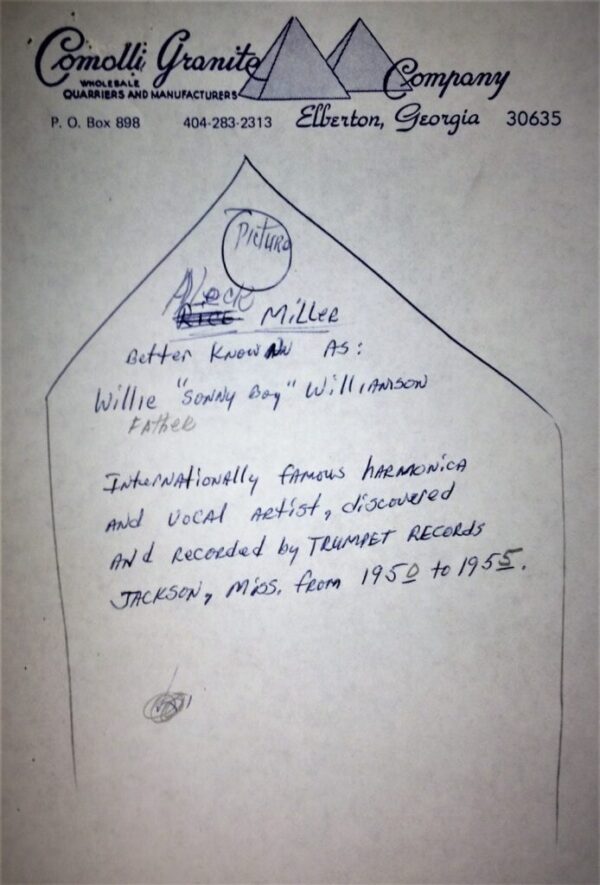 Comolli Granite Company
WHOLESALE
QUARRIERS AND MANUFACTURERS
P. O. Box 898 404-283-2313 Elberton, Georgia 30635
PICTURE
Aleck
RICE MILLER
BETTER KNOWN AS:
Willie "SONNY Boy" WilliAMSON
FATHER
INTERNATIONALLY FAMOUS HARMONICA
AND VOCAL ARTIST, discovered
ANd RECORded by TRUMPET RECORDS
JACKSON, Miss. from 1950 to 1955.